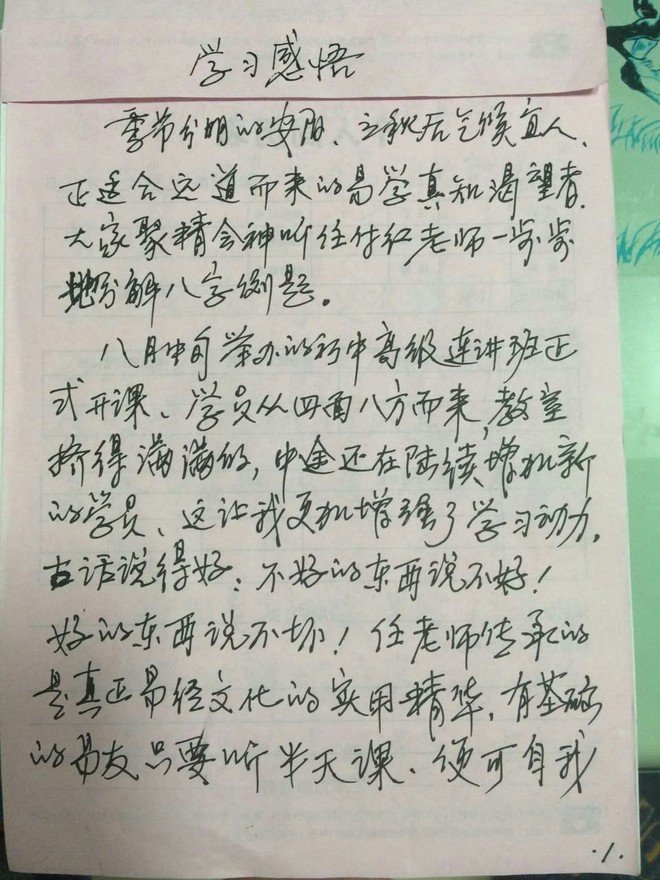 学习感悟
季节分明的安阳、立秋后气候宜人、
正适合远道而来的易学真知渴望者.
大家聚精会神听任付红老师一步步
地分解八字例题。
八月中旬举办的初中高级连讲班正
式开课、学员从四面八方而来,教室
挤得满满的,中途还在陆续增加新
的学员、这让我更加增强了学习动力。
古话说得好:不好的东西说不好!
好的东西说不坏!任老师传承的
是真正易经文化的实用精华,有基础
的易友只要听半天课、便可自我
·1·